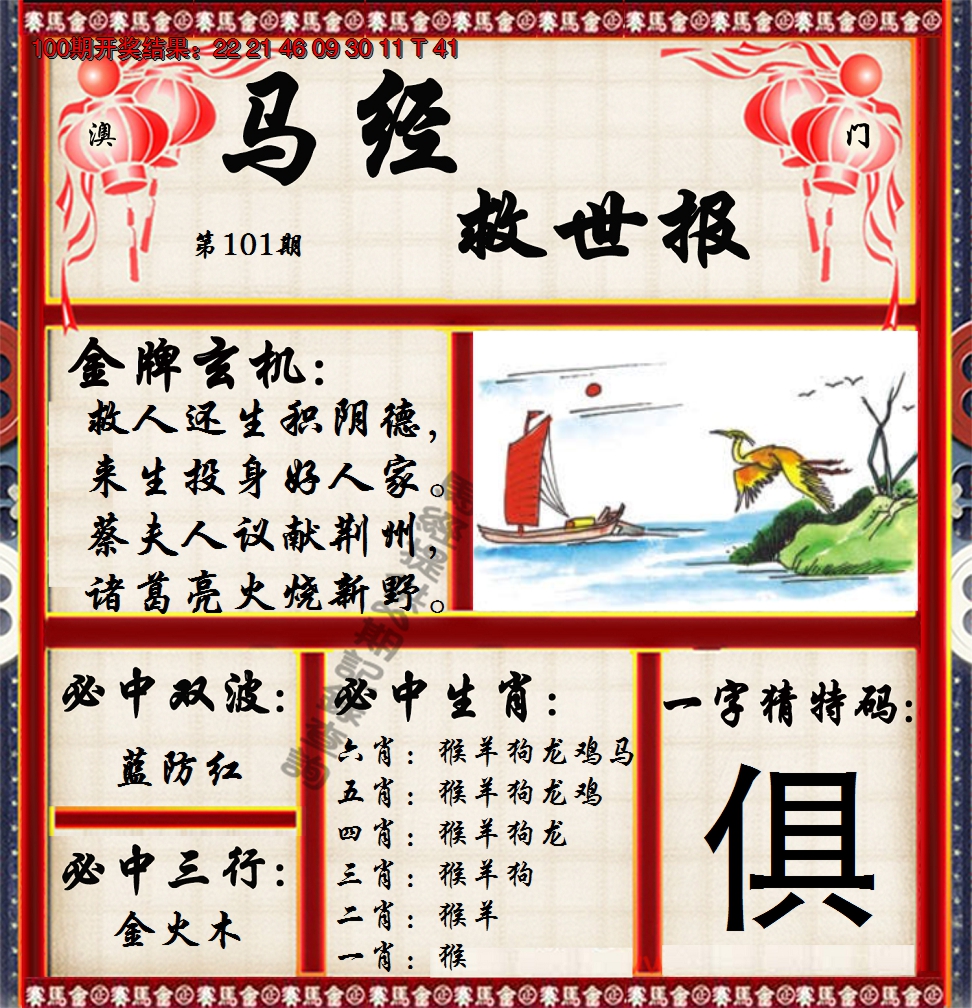 赛馬會㊣赛馬會㊣赛馬會㊣赛馬會㊣赛馬會㊣
100期开奖结果：22 21 46 09 30 11 T 41
澳 马经 门
救世报
第101期
金牌玄机：
救人还生积阴德，
来生投身好人家。
蔡夫人议献荆州，
诸葛亮火烧新野。
必中双波：
蓝防红
必中三行：
金火木
必中生肖：
六肖：猴羊狗龙鸡马
五肖：猴羊狗龙鸡
四肖：猴羊狗龙
三肖：猴羊狗
二肖：猴羊
一肖：猴
一字猜特码：
俱